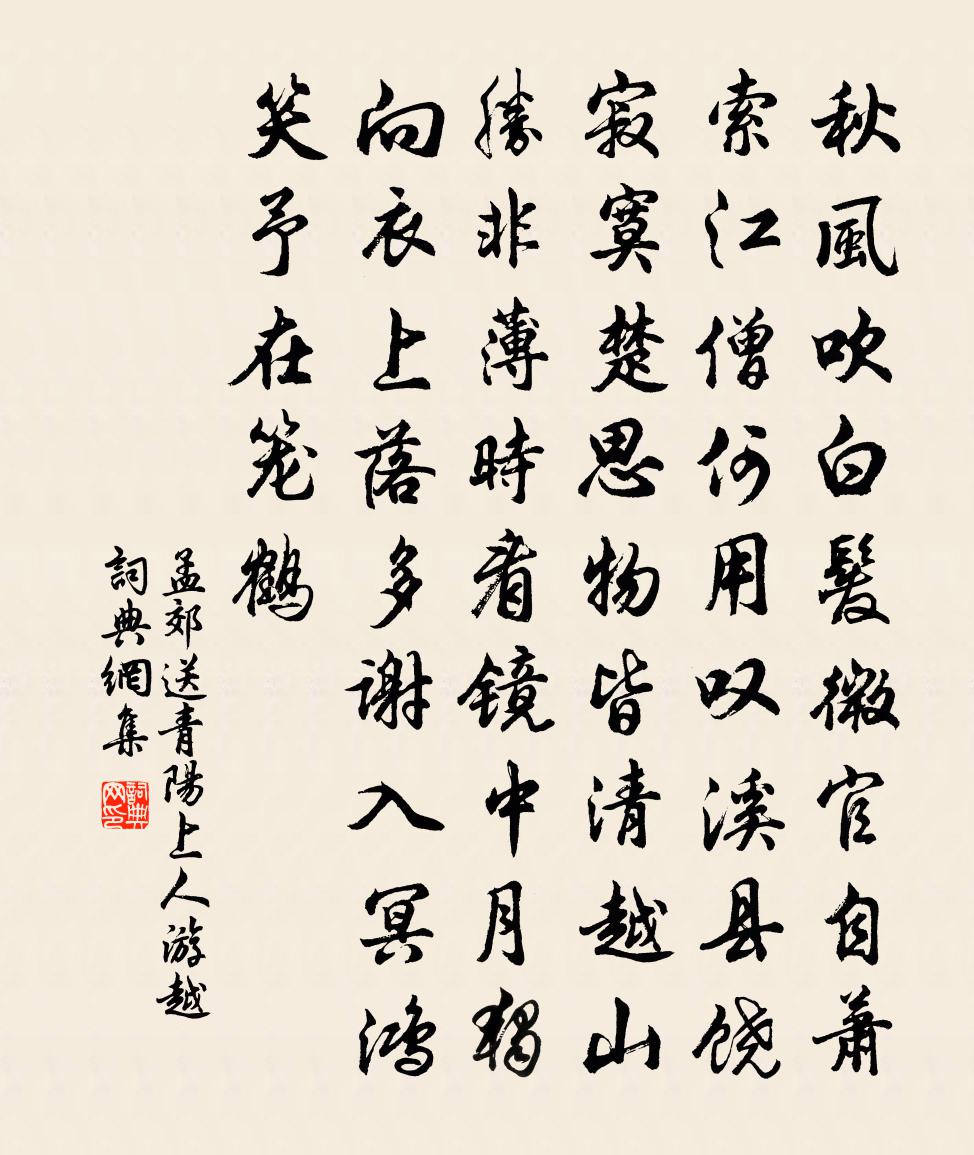 秋風吹白髮微官自蕭
索江僧何用叹溪县饶
寂寞楚思物皆清越山
勝非薄時看镜中月独
向衣上落多謝入冥鸿
笑予在笼鹤
孟郊送青陽上人游越
詞典網集
詞典网印